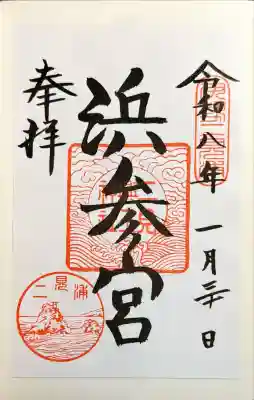 令和八年 一月三十日
浜参宮
奉拝
二見浦